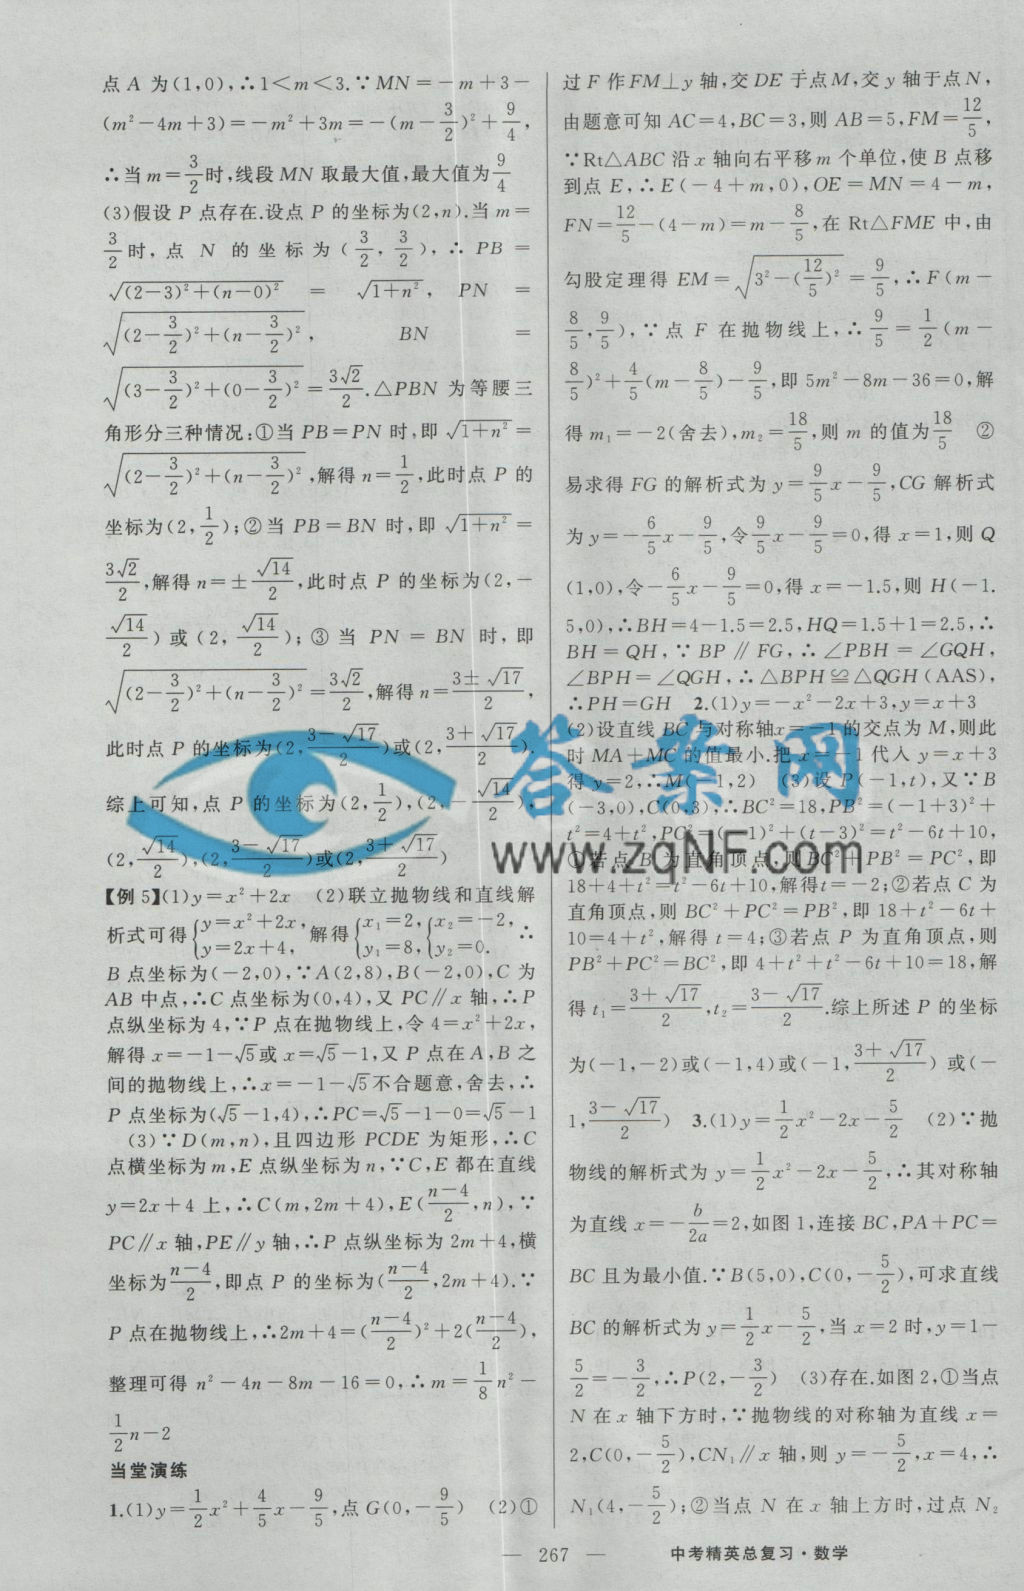 点 A 为(1,0),∴1<m<3.∵MN=-m+3-
(m²-4m+3)=-m²+3m=-(m-3/2)²+9/4,
∴当m=3/2时,线段MN取最大值,最大值为9/4
(3)假设 P 点存在.设点 P 的坐标为(2,n).当 m=
3/2时,点 N 的坐标为(3/2,3/2),∴PB=
√((2-3)²+(n-0)²) = √(1+n²), PN =
√((2-3/2)²+(n-3/2)²), BN =
√((3-3/2)²+(0-3/2)²)=3√2/2.△PBN 为等腰三
角形分三种情况:①当 PB=PN 时,即√(1+n²)=
√((2-3/2)²+(n-3/2)²),解得n=1/2,此时点 P 的
坐标为(2,1/2);②当 PB=BN 时,即√(1+n²)=
3√2/2,解得n=±√14/2,此时点 P 的坐标为(2,-
√14/2)或(2,√14/2);③当 PN=BN 时,即
√((2-3/2)²+(n-3/2)²)=3√2/2,解得n=(3±√17)/2,
此时点 P 的坐标为(2,(3-√17)/2)或(2,(3+√17)/2).
综上可知,点 P 的坐标为(2,1/2),(2,-√14/2),
(2,√14/2),(2,(3-√17)/2)或(2,(3+√17)/2)
【例 5】(1)y=x²+2x (2)联立抛物线和直线解
析式可得{y=x²+2x, y=2x+4, 解得{x₁=2, y₁=8, {x₂=-2, y₂=0. ∴
B 点坐标为(-2,0),∵A(2,8),B(-2,0),C 为
AB 中点,∴C 点坐标为(0,4),又 PC∥x 轴,∴P
点纵坐标为 4,∵P 点在抛物线上,令 4=x²+2x,
解得 x=-1-√5或 x=√5-1,又 P 点在 A,B 之
间的抛物线上,∴x=-1-√5不合题意,舍去,∴
P 点坐标为(√5-1,4),∴PC=√5-1-0=√5-1
(3)∵D(m,n),且四边形 PCDE 为矩形,∴C
点横坐标为 m,E 点纵坐标为 n,∵C,E 都在直线
y=2x+4 上,∴C(m,2m+4),E((n-4)/2,n),∵
PC∥x 轴,PE∥y 轴,∴P 点纵坐标为 2m+4,横
坐标为(n-4)/2,即点 P 的坐标为((n-4)/2,2m+4).∵
P 点在抛物线上,∴2m+4=((n-4)/2)²+2((n-4)/2),
整理可得 n²-4n-8m-16=0,∴m=1/8n²-
1/2n-2
当堂演练
1.(1)y=1/2x²+4/5x-9/5,点G(0,-9/5) (2)①
过 F 作FM⊥y 轴,交 DE 于点M,交 y 轴于点 N,
由题意可知 AC=4,BC=3,则 AB=5,FM=12/5,
∵Rt△ABC 沿 x 轴向右平移 m 个单位,使 B 点移
到点 E,∴E(-4+m,0),OE=MN=4-m,
FN=12/5-(4-m)=m-8/5,在 Rt△FME 中,由
勾股定理得 EM=√(3²-(12/5)²)=9/5,∴F(m-
8/5,9/5),∵点 F 在抛物线上,∴9/5=1/2(m-
8/5)²+4/5(m-8/5)-9/5,即 5m²-8m-36=0,解
得 m₁=-2(舍去),m₂=18/5,则 m 的值为18/5 ②
易求得 FG 的解析式为 y=9/5x-9/5,CG 解析式
为 y=-6/5x-9/5,令9/5x-9/5=0,得 x=1,则 Q
(1,0),令-6/5x-9/5=0,得 x=-1.5,则 H(-1.
5,0),∴BH=4-1.5=2.5,HQ=1.5+1=2.5,∴
BH=QH,∵BP∥FG,∴∠PBH=∠GQH,
∠BPH=∠QGH,∴△BPH≌△QGH(AAS),
∴PH=GH 2.(1)y=-x²-2x+3,y=x+3
(2)设直线 BC 与对称轴x=-1的交点为 M,则此
时 MA+MC 的值最小.把 x=-1 代入 y=x+3
得 y=2,∴M(-1,2) (3)设 P(-1,t),又∵B
(-3,0),C(0,3),∴BC²=18,PB²=(-1+3)²+
t²=4+t²,PC²=(-1)²+(t-3)²=t²-6t+10,
①若点 B 为直角顶点,则 BC²+PB²=PC²,即
18+4+t²=t²-6t+10,解得t=-2;②若点 C 为
直角顶点,则 BC²+PC²=PB²,即 18+t²-6t+
10=4+t²,解得 t=4;③若点 P 为直角顶点,则
PB²+PC²=BC²,即 4+t²+t²-6t+10=18,解
得t₁=(3+√17)/2,t₂=(3-√17)/2.综上所述 P 的坐标
为(-1,-2)或(-1,4)或(-1,(3+√17)/2)或(-
1,(3-√17)/2) 3.(1)y=1/2x²-2x-5/2 (2)∵抛
物线的解析式为 y=1/2x²-2x-5/2,∴其对称轴
为直线 x=-b/2a=2,如图 1,连接 BC,PA+PC=
BC 且为最小值.∵B(5,0),C(0,-5/2),可求直线
BC 的解析式为 y=1/2x-5/2,当 x=2 时,y=1-
5/2=-3/2,∴P(2,-3/2) (3)存在.如图 2,①当点
N 在 x 轴下方时,∵抛物线的对称轴为直线 x=
2,C(0,-5/2),CN₁∥x 轴,则 y=-5/2,x=4,∴
N₁(4,-5/2);②当点 N 在 x 轴上方时,过点 N₂
答案网
www.zqNF.com
— 267 —
中考精英总复习·数学